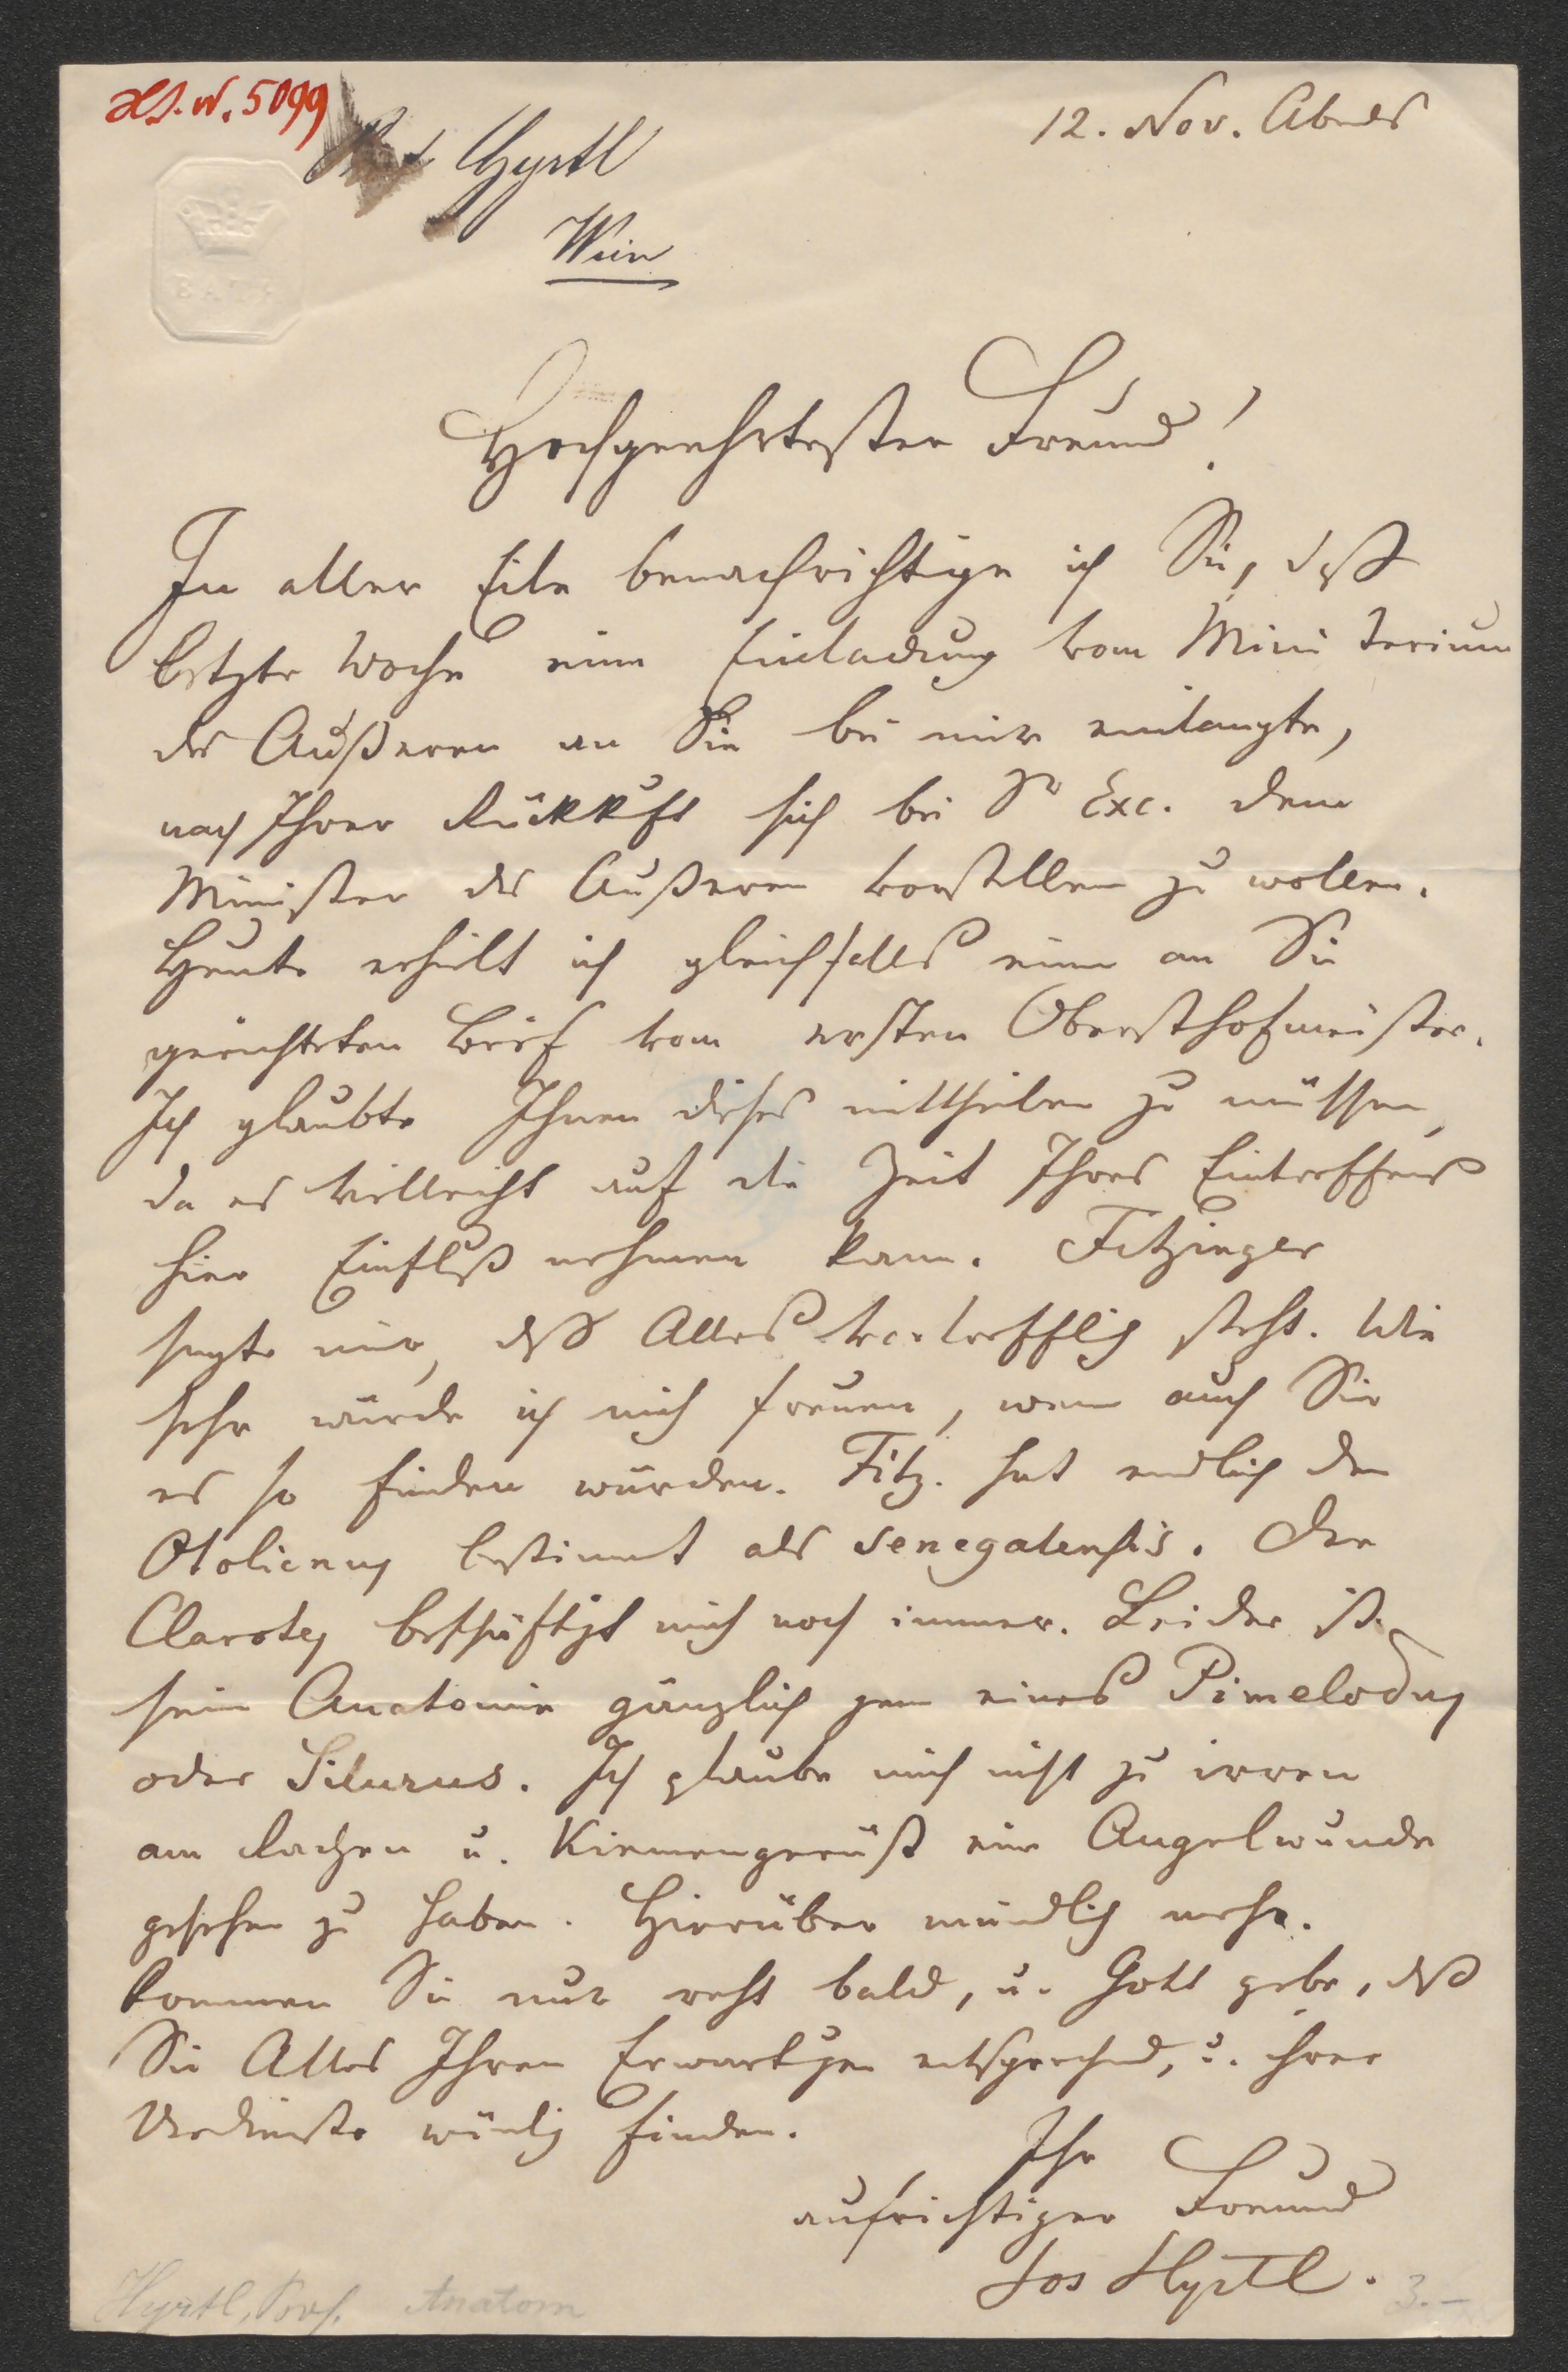 Hs. N. 5099
12. Nov. Abends
Hyrtl
Wien
BATH
Hochgeehrtester Freund!
In aller Eile benachrichtige ich Sie, dß
letzte Woche eine Einladung vom Ministerium
des Außeren an Sie bei mir einlangte,
nach Ihrer Rückkuft sich bei Sr Exc. dem
Minister des Außeren vorstellen zu wollen.
Heute erhielt ich gleichfalls einen an Sie
gerichteten Brief vom ersten Obersthofmeister.
Ich glaubte Ihnen dieses mittheilen zu müssen,
da es vielleicht auf die Zeit Ihres Eintreffens
hier Einfluß nehmen kann. Fitzinger
sagte mir, dß Alles vortrefflich steht. Wie
sehr würde ich mich freuen, wenn auch Sie
es so finden würden. Fitz. hat endlich den
Otolicnus bestimmt als senegalensis. Der
Clarotes beschäftigt mich noch immer. Leider ist
sein Anatomie gänzlich jene eines Pimelodus
oder Silurus. Ich glaube mich nicht zu irren
am Rachen u. Kiemengerüst eine Angelwunde
gesehen zu haben. Hierüber mündlich mehr.
Kommen Sie nur recht bald, u. Gott gebe, dß
Sie Alles Ihren Erwartgen entsprechend, u. ihrer
Verdienste würdig finden.
Ihr
aufrichtiger Freund
Jos Hyrtl.
Hyrtl, Prof. Anatom
3.–